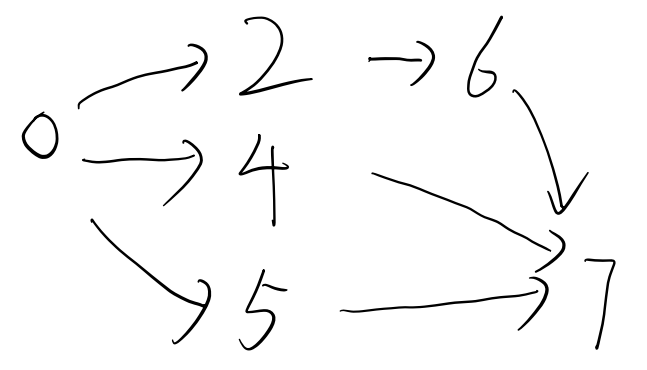 0 → 2 → 6
4
5
7